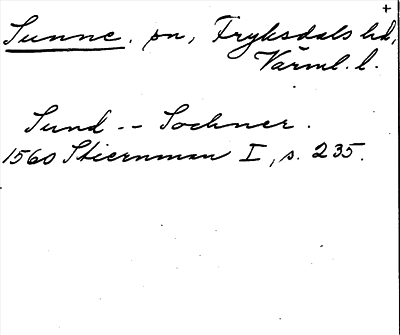 +
Sunne. sn, Fryksdals hd,
Värml. l.
Sund -- Sochner.
1560 Stiernman I, s. 235.